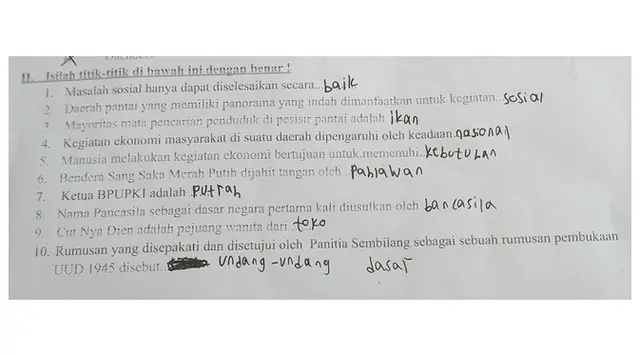 II. Isilah titik-titik di bawah ini dengan benar !
1. Masalah sosial hanya dapat diselesaikan secara...baik
2. Daerah pantai yang memiliki panorama yang indah dimanfaatkan untuk kegiatan..sosial
3. Mayoritas mata pencarian penduduk di pesisir pantai adalah ikan
4. Kegiatan ekonomi masyarakat di suatu daerah dipengaruhi oleh keadaan.nasional
5. Manusia melakukan kegiatan ekonomi bertujuan untuk memenuhi..kebutuhan
6. Bendera Sang Saka Merah Putih dijahit tangan oleh . Pahlawan
7. Ketua BPUPKI adalah .Putrah
8. Nama Pancasila sebagai dasar negara pertama kali diusulkan oleh bancasila
9. Cut Nya Dien adalah pejuang wanita dari..toko
10. Rumusan yang disepakati dan disetujui oleh Panitia Sembilang sebagai sebuah rumusan pembukaan
UUD 1945 disebut.. undang-undang dasar